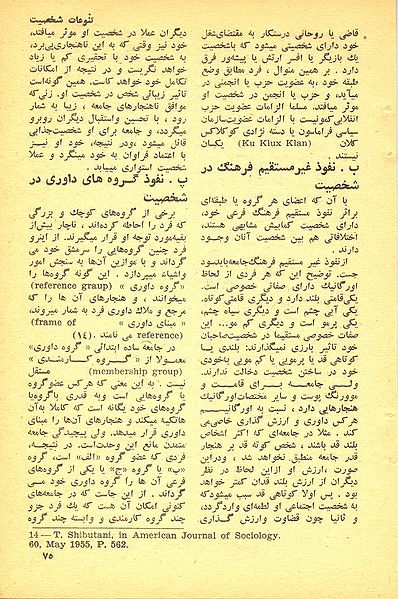 تنوعات شخصیت
قاضی یا روحانی درستکار به مقتضای‌شغل
خود دارای شخصیتی میشود که باشخصیت
یک بازیگر یا افسر ارتش یا پیشه‌ور فرق
دارد . بر همین منوال ، فرد مطابق وضع
طبقه خود ،به عضویت حزب یا انجمنی در
میآید، و حزب یا انجمن در شخصیت او
موثر میافتد. مسلما الزامات عضویت حزب
انقلابی‌کمونیست با الزامات عضویت‌سازمان
سیاسی فراماسون یا دسته نژادی کوکلاکس
کلان (Ku Klux Klan) یکسان
نیستند
ب . نفوذ غیرمستقیم فرهنگ در
شخصیت
با آن که اعضای هر گروه یا طبقه‌ای
براثر نفوذ مستقیم فرهنگ فرعی خود،
دارای شخصیت کمابیش مشابهی هستند،
اختلافاتی هم بین شخصیت آنان وجود
دارند.
ازنفوذ غیر مستقیم فرهنگ‌جامعه‌بایدسود
جست. توضیح این که هر فردی از لحاظ
اورگانیك دارای صفاتی خصوصی است.
یکی‌قامتی بلند دارد و دیگری قامتی‌کوتاه.
یکی آبی چشم است و دیگری سیاه چشم،
یکی پرمو است و دیگری کم مو... این
صفات خصوصی مستقیما در شخصیت‌صاحبان
خود تاثیر بارزی نمیگذارند. بلندی یا
کوتاهی قد یا پرمویی یا کم مویی به‌خودی
خود در ساختن شخصیت دخالت ندارند.
ولی جامعه برای قامت و
مووررنگ پوست و سایر مختصات‌اورگانیك
هنجارهایی دارد ، نسبت به اورگانیسم
هرکس داوری و ارزش گذاری خاصی‌می
کند . مثلا در جامعه‌ای که اکثر اشخاص
بلند قد باشند ، شخص کوته قد بر هنجار
قد جامعه منطبق نخواهد شد ، ودراین
صورت ،ارزش او ازاین لحاظ در نظر
دیگران از ارزش بلند قدان کمتر خواهد
بود . پس اولا کوتاهی قد سبب میشودکه
به شخصیت اجتماعی او لطمه‌ای واردگردد،
و ثانیا چون قضاوت وارزش گذاری
دیگران عملا در شخصیت او موثر میافتد،
خود نیز وقتی که به این ناهنجاری‌پی‌برد،
به شخصیت خود با تحقیری کم یا زیاد
خواهد نگریست و در نتیجه از امکانات
تکامل خود خواهد کاست. همین گونه‌است
تاثیر زیبائی شخص در شخصیت او. زنی‌که
موافق ناهنجارهای جامعه ، زیبا به شمار
رود ، با تحسین واستقبال دیگران روبرو
میگردد، و جامعه برای او شخصیت‌جذابی
قائل میشود ،ودر نتیجه، خود او نیز
با اعتماد فراوان به خود مینگرد و عملا
شخصیت استواری مییابد .
پ . نفوذ گروه های داوری در
شخصیت
برخی از گروه‌های کوچك و بزرگی
که فرد را احاطه کرده‌اند ، ناچار بیش‌از
بقیه‌مورد توجه او قرار میگیرند. از اینرو
فرد چنین گروه‌هایی را سرمشق خود می
گرداند و با موازین آن‌ها به سنجش امور
واشیاء میپردازد . این گونه گروه‌ها را
«گروه داوری » (reference graup)
میخوانند ، و هنجارهای آن ها را که
مرجع و ملاك داوری فرد به شمار میروند،
« مبنای داوری » (frame of
reference) می نامند . (۱۴)
در جامعه ساده ابتدائی «گروه داوری»
معمولا از «گروه کارمندی »
(membership group) مستقل
نیست . به این معنی که هرکس عضوگروه
یا گروه‌هایی است وبه قدری باگروه‌یا
گروه‌های خود یگانه است که کاملا به‌آن
هاتکیه میکند و هنجارهای آن‌ها را مبنای
داوری قرار میدهد. ولی پیچیدگی جامعه
متمدن مانع این وحدت‌است. در نتیجه،
فردی که عضو گروه «الف» است، گروه
«ب» یا گروه «ج» یا یکی از گروه‌های
فرعی آن ها را گروه داوری خود می
گرداند . از این جاست که در جامعه‌های
کنونی امکان آن هست که یك فرد جزو
چند گروه کارمندی و وابسته چند گروه
14 — T. Shibutani, in American Journal of Sociology.
60, May 1955, P. 562.
۷۵